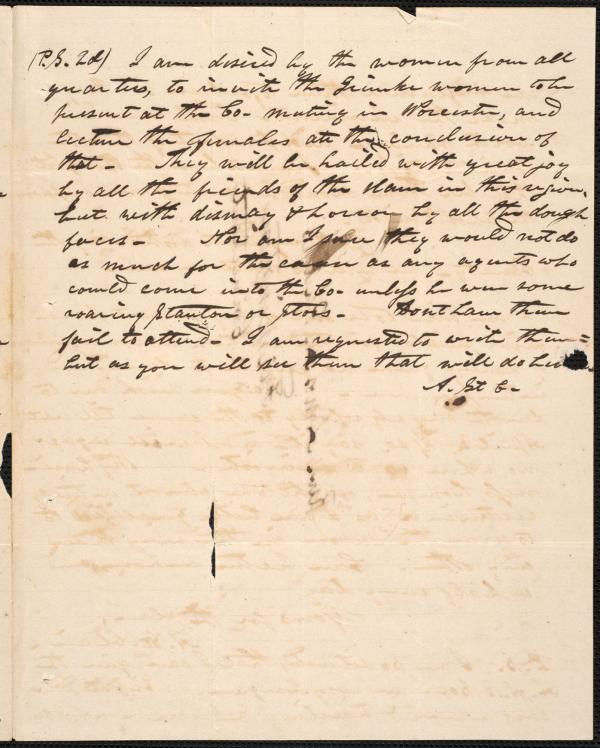 (P.S. 2d) I am desired by the women from all
quarters, to invite the Grimke women to be
present at the Co. meeting in Worcester, and
lecture the females at the conclusion of
that - They will be hailed with great joy
by all the friends of the slave in this region,
but with dismay & horror by all the dough
faces - Nor am I sure they would not do
as much for the cause as any agents who
could come into the Co - unless he were some
roaring Stanton or - Dont have them
fail to attend - I am requested to write them =
but as you will see them that will do
A. St C -